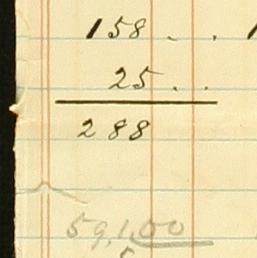 158 . .
25 . .
288
59,1,00